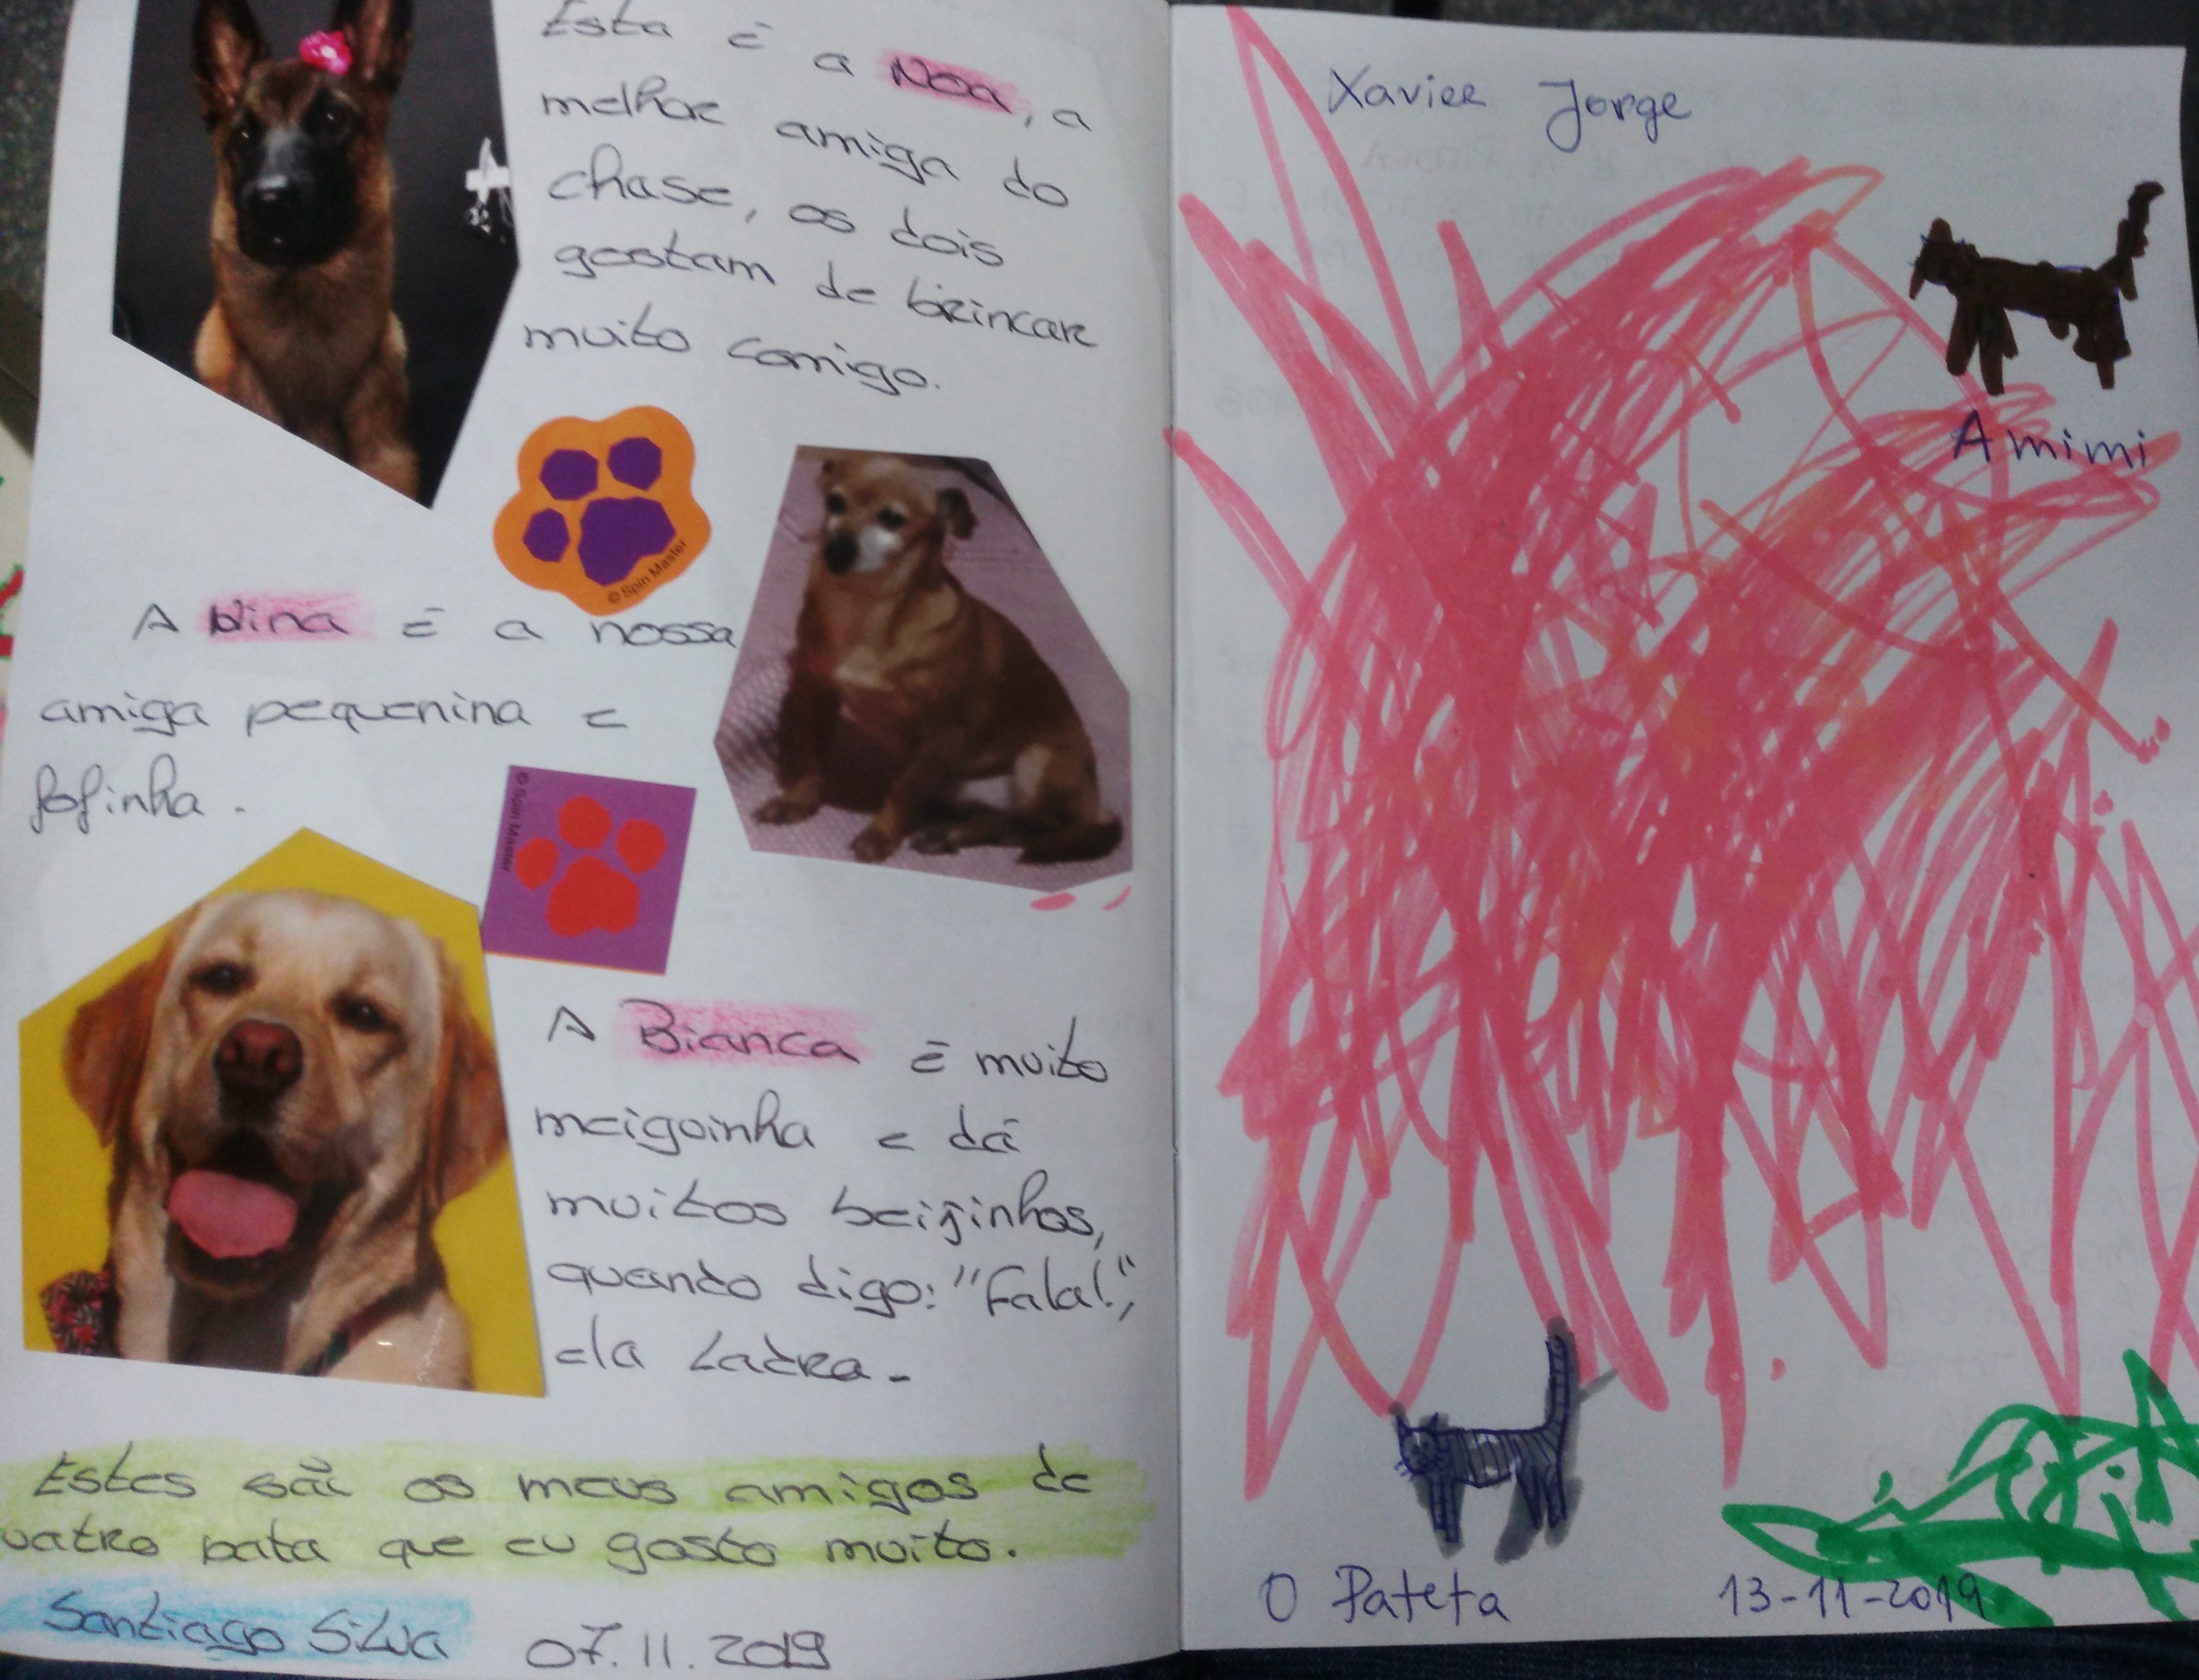 Esta é a Noa, a
melhor amiga do
chase, os dois
gostam de brincar
muito comigo.
© Spin Master
A Nina é a nossa
amiga pequenina e
fofinha.
© Spin Master
A Bianca é muito
meiguinha e dá
muitos beijinhos,
quando digo: "Fala!",
ela Ladra.
Estes são os meus amigos de
uatro pata que eu gosto muito.
Santiago Silva 07.11.2019
Xavier Jorge
A mimi
O Pateta 13-11-2019